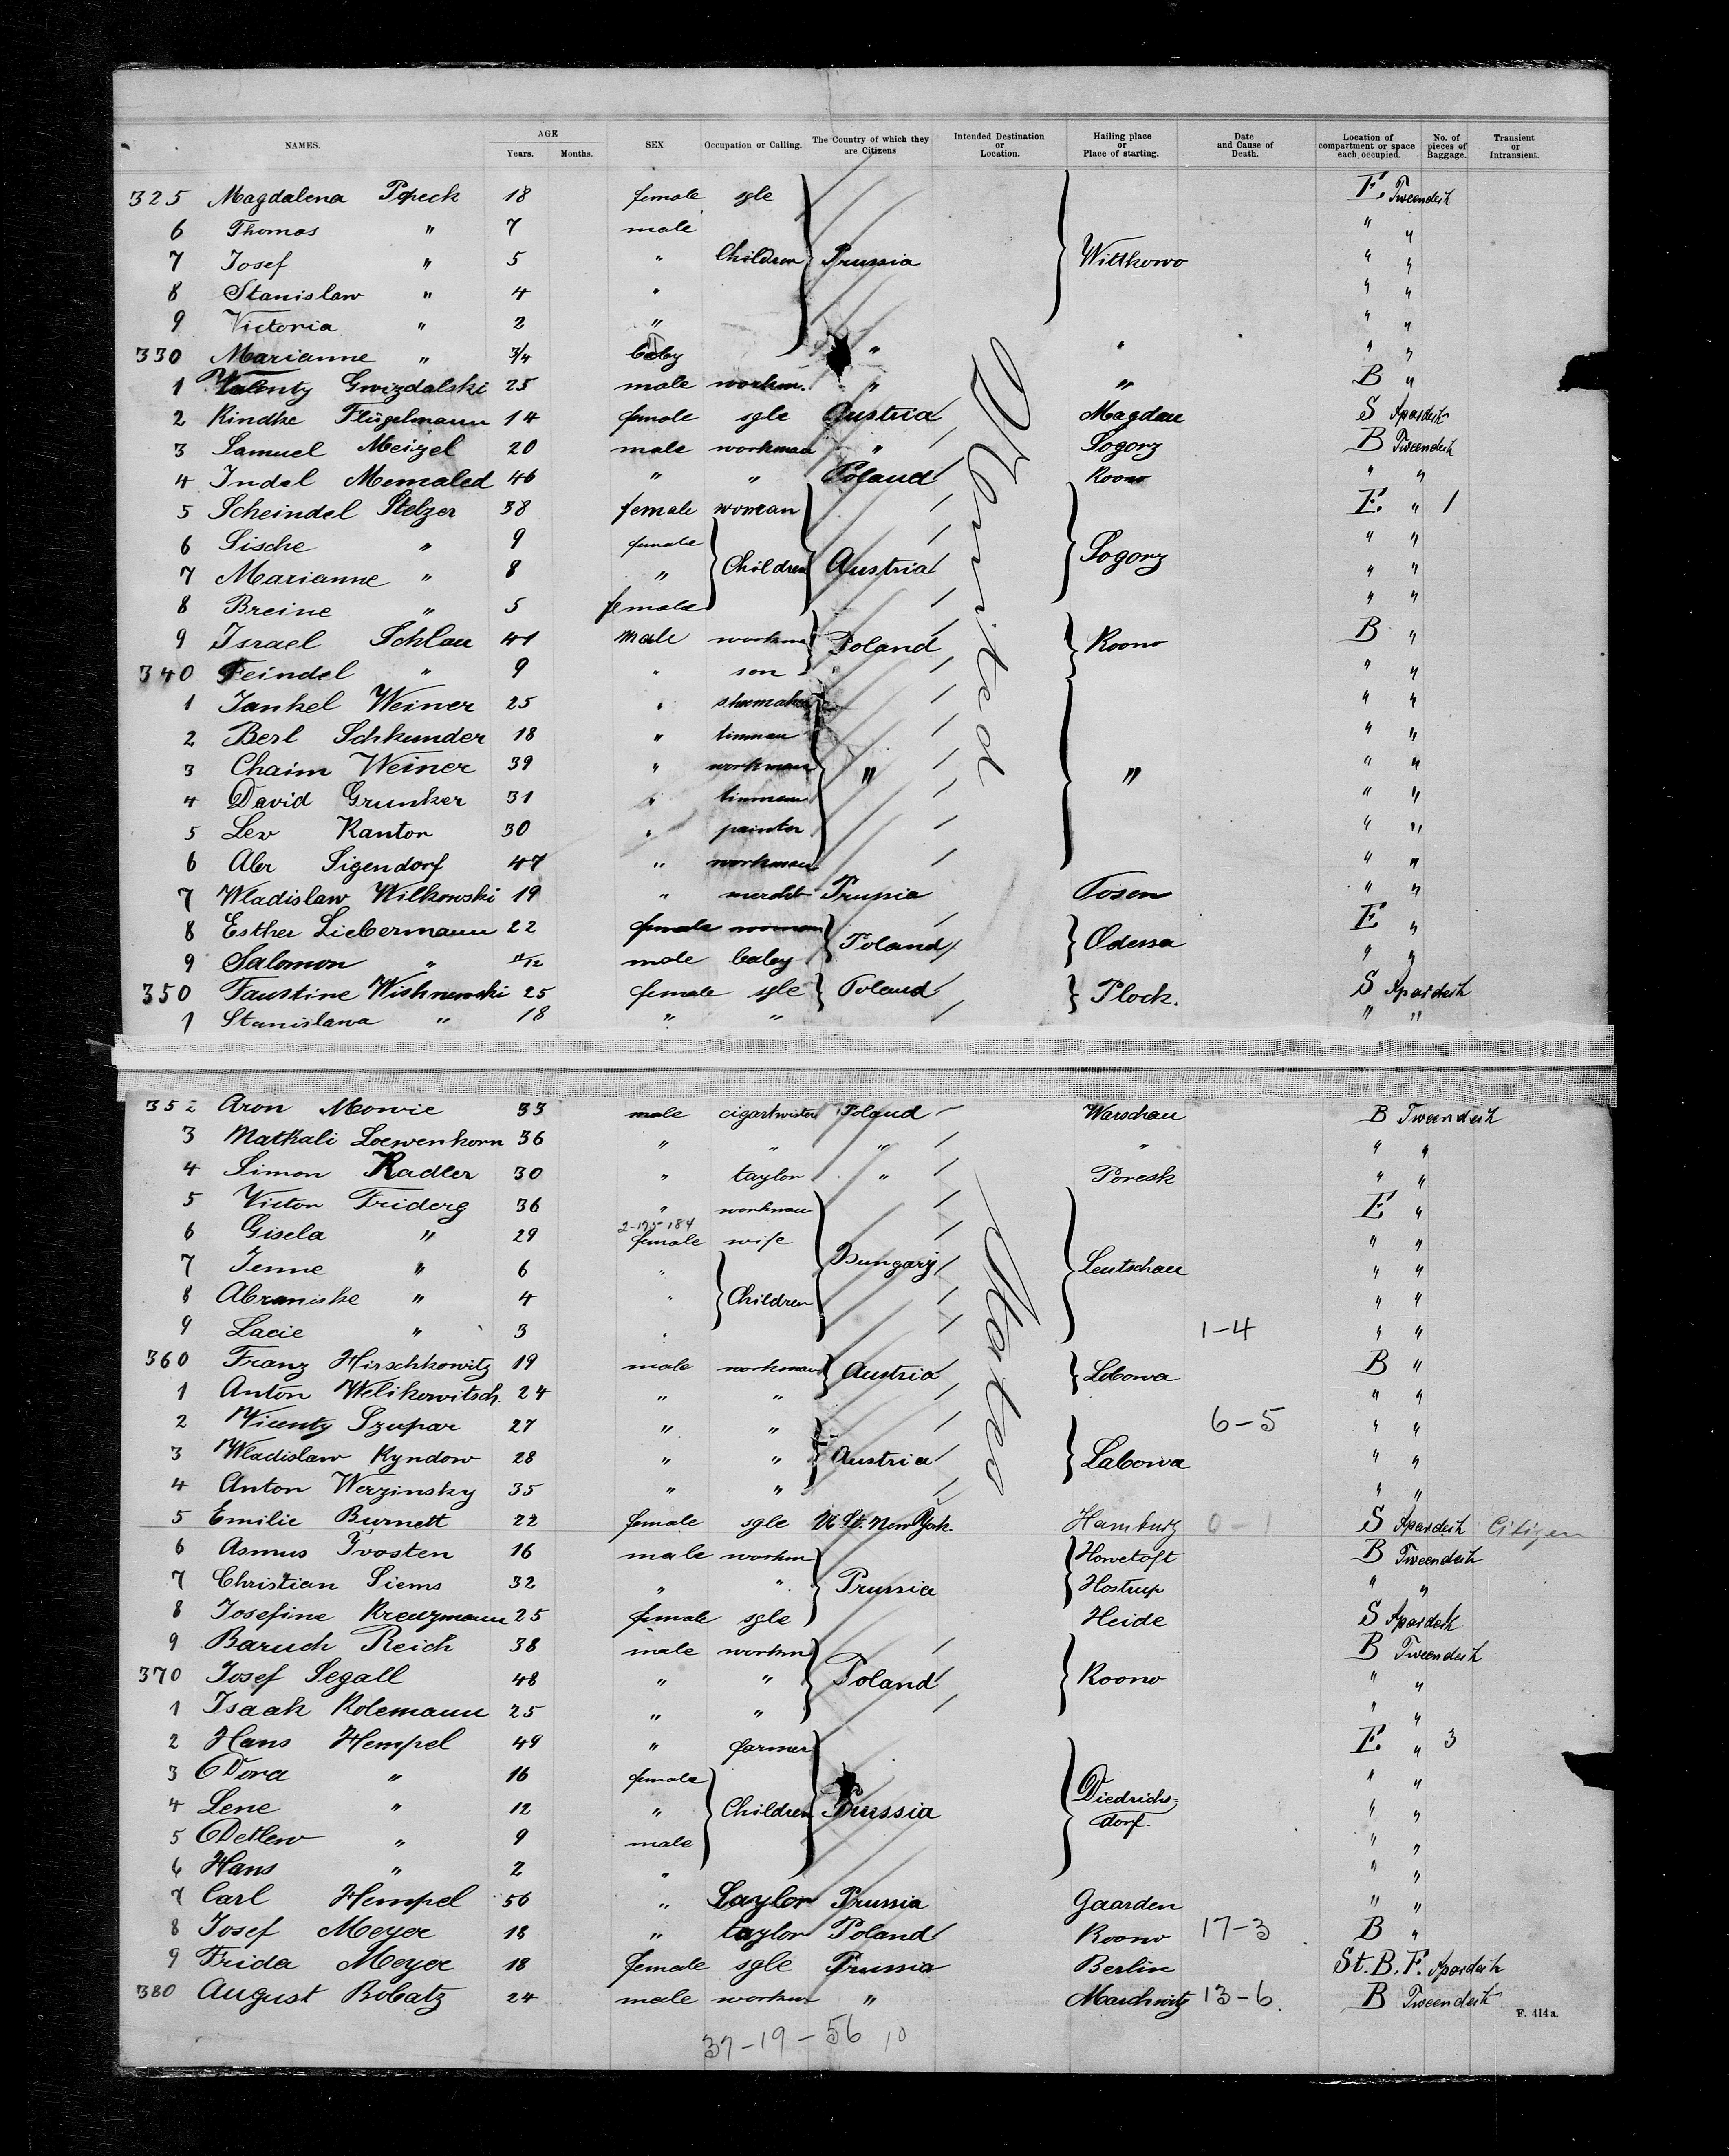 NAMES. AGE Years. Months. SEX Occupation or Calling. The Country of which they are Citizens Intended Destination or Location. Hailing place or Place of starting. Date and Cause of Death. Location of compartment or space each occupied. No. of pieces of Baggage. Transient or Intransient.
325 Magdalena 18 female sgle E. Tweendeck
6 Thomas " 7 male " "
7 Josef " 5 " Children Prussia Wittkowo " "
8 Stanislaw " 4 " " "
9 Victoria " 2 " " "
330 Marianne " 3/4 baby " " " "
1 Valenty Gwizdalski 25 male workm. " " B "
2 Rindke Flügelmann 14 female sgle Austria Magdau S Spardeck
3 Samuel Meizel 20 male workman " Sogorz B Tweendeck
4 Indel Memaled 46 " " Poland Koono " "
5 Scheindel Stelzer 38 female woman E. " 1
6 Sische " 9 female " "
7 Marianne " 8 " Children Austria Sogorz " "
8 Breine " 5 female " "
9 Israel Schlau 41 male workm Poland Koono B "
340 Feindel " 9 " son " " "
1 Jankel Weiner 25 " shumaker " "
2 Berl Schkunder 18 " tinman " "
3 Chaim Weiner 39 " workman " " " "
4 David Grunker 31 " tinman " "
5 Lew Kantor 30 " painter " "
6 Aber Sigendorf 47 " workman " "
7 Wladislaw Wilkowski 19 " Prussia Posen " "
8 Esther Liebermann 22 female woman Poland Odessa E. "
9 Salomon " 11/12 male baby " "
350 Faustine Wishnewski 25 female sgle Poland Plock. S Spardeck
1 Stanislawa " 18 " " " "
United
352 Aron Mowie 33 male cigartwister Poland Warschau B Tweendeck
3 Nathali Loewenkorn 36 " " " " " "
4 Simon Kadler 30 " taylor " Poresk " "
5 Victor Friderg 36 " workman E "
2-195-184
6 Gisela " 29 female wife " "
7 Jenne " 6 " Hungary Leutschau " "
8 Abraniske " 4 " Children " "
9 Lacie " 3 " 1-4 " "
360 Franz Hirschkowitz 19 male workman Austria Lebowa B "
1 Anton Welikowitsch. 24 " " " "
2 Wicenty Szupar 27 " " 6-5 " "
3 Wladislaw Kyndow 28 " " Austria Labowa " "
4 Anton Werzinsky 35 " " " "
States
5 Emilie Burnett 22 female sgle U. St. New York. Hamburg 0-1 S Spardeck Citizen
6 Asmus Ivosten 16 male workm Howetoft B Tweendeck
7 Christian Siems 32 " " Prussia Hostrup " "
8 Josefine Kreuzmann 25 female sgle Heide S Spardeck
9 Baruch Reich 38 male workm B Tweendeck
370 Josef Segall 48 " " Poland Koono " "
1 Isaak Kolemann 25 " " " "
2 Hans Hempel 49 " farmer E "  3
3 Dora " 16 female " "
4 Lene " 12 " Children Prussia Diedrichs=dorf. " "
5 Detlew " 9 male " "
6 Hans " 2 " " "
7 Carl Hempel 56 " Saylor Prussia Gaarden " "
8 Josef Meyer 18 " taylor Poland Koono 17-3 B "
9 Frida Meyer 18 female sgle Prussia Berlin St. B. F. Spardeck
380 August Bobatz 24 male workm " Marchwitz 13-6. B Tweendeck
F. 414a.
37-19-56 10